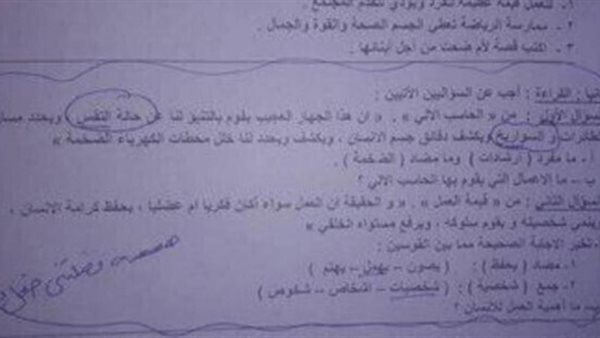 ١ - للعمل قيمة عظيمة للفرد ويؤدي لتقدم المجتمع .
٢ - ممارسة الرياضة تعطي الجسم الصحة والقوة والجمال .
٣ - اكتب قصة لأم ضحت من أجل أبنائها .
القراءة : أجب عن السؤالين الآتيين :
السؤال الأول : من « الحاسب الآلي » . « ان هذا الجهاز العجيب يقوم بالتنبؤ لنا عن حالة التقس ، ويحدد مسار
الطائرات و السواريخ ويكشف دقائق جسم الانسان ، ويكشف ويحدد لنا خلل محطات الكهرباء الضخمة »
أ - ما مفرد ( ارشادات ) وما مضاد ( الضخمة ) .
ب - ما الاعمال التي يقوم بها الحاسب الآلي ؟
السؤال الثاني : من « قيمة العمل » . « و الحقيقة ان العمل سواء أكان فكريا ام عضليا ، يحفظ كرامة الانسان ،
وينمي شخصيته و يقوم سلوكه ، ويرفع مستواه الخلقي »
تخير الاجابة الصحيحة مما بين القوسين :
١ - مضاد ( يحفظ ) : ( يصون – يهمل – يهتم )
٢ - جمع ( شخصية ) : ( شخصيات – اشخاص – شخوص )
ب - ما أهمية العمل للانسان ؟